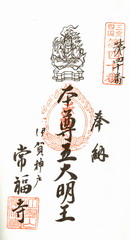 第四十番
奉納
本尊五大明王
伊賀神戸
常福寺